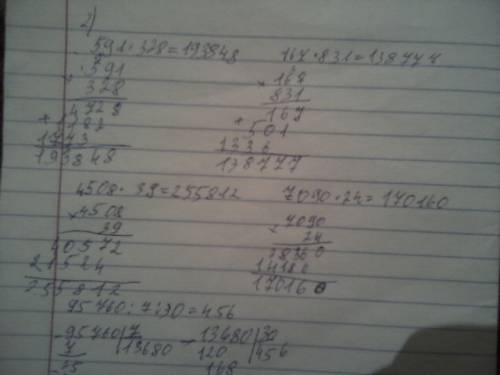 2)
591 · 328 = 193848
167 · 831 = 138777
591
328
4728
+ 1182
1773
193848
× 167
831
167
+ 501
1336
138777
4508 · 39 = 255812
7090 · 24 = 170160
× 4508
39
40572
255812
× 7090
24
28360
14180
170160
95760 : 7 : 30 = 456
95760 | 7
7
13680
25
13680 | 30
120
456
168